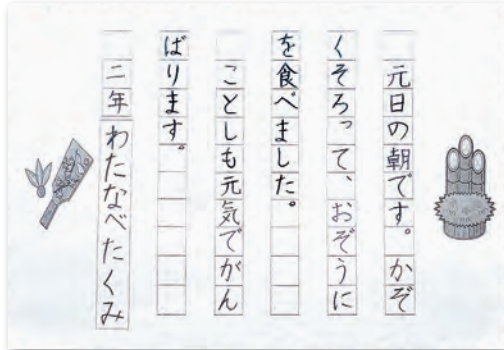 元日の朝です。かぞ
くそろって、おぞうに
を食べました。
ことしも元気でがん
ばります。
二年わたなべたくみ